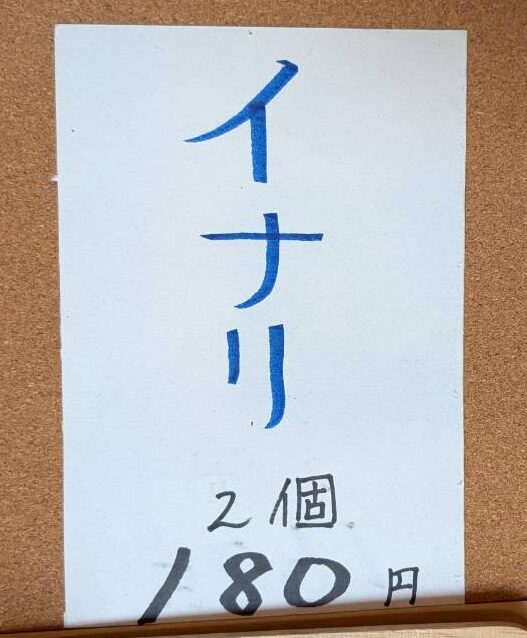 イナリ
2個
180円